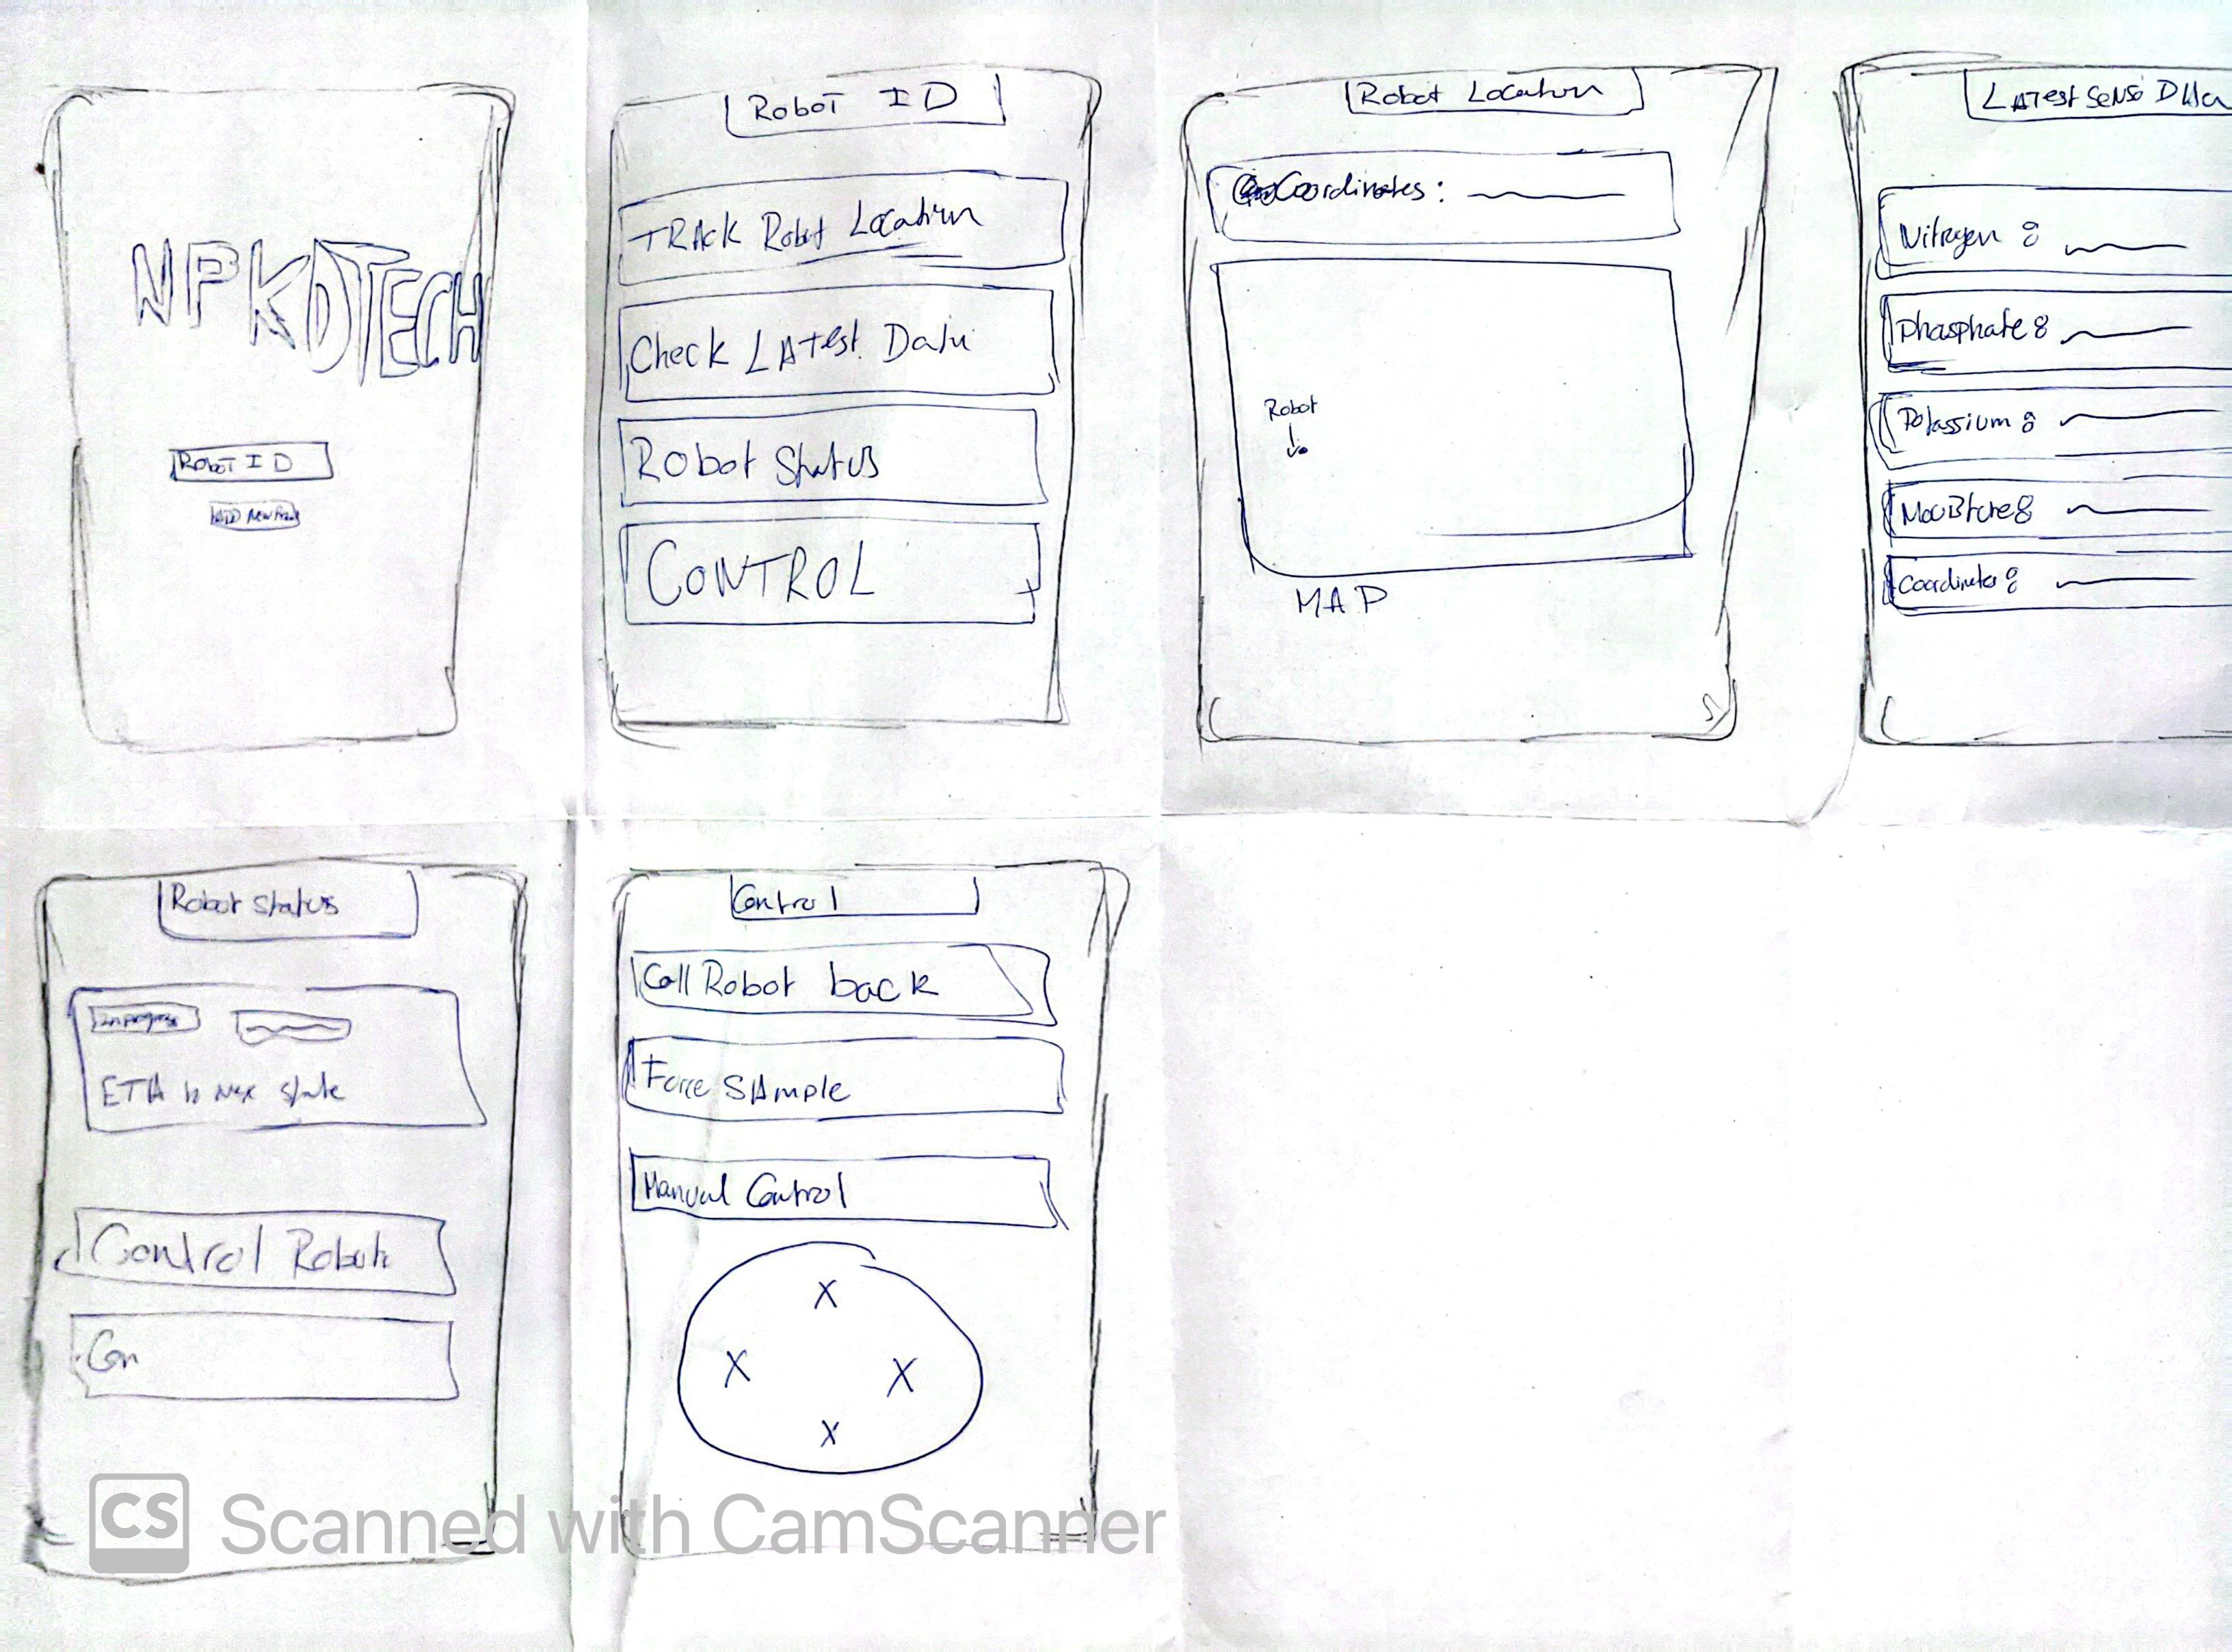 NPKDTECH
Robot ID
ADD New
Robot ID
TRAcK Robot Location
Check LATest Data
Robot Status
CONTROL
Robot Location
Coordinates:
Robot
MAP
LATest Senso Data
Nitrogen:
Phosphate:
Potassium:
Moisture:
Coordinates:
Robot Status
In progress
ETA to Nex State
Control Robot
Con
Control
Call Robot back
Force SAmple
Manual Control
X
X X
X
CS Scanned with CamScanner